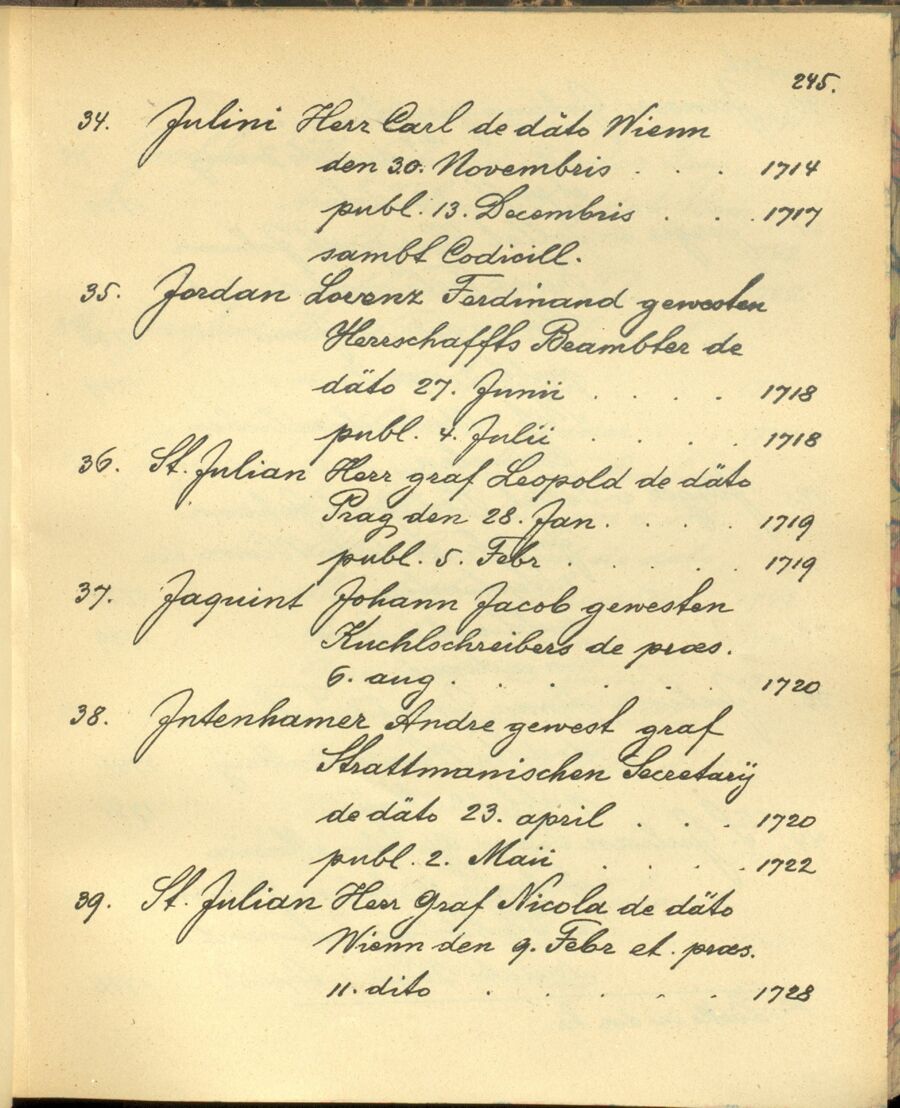 245.
34. Julini Herr Carl de däto Wienn
den 30. Novembris . . . 1714
publ. 13. Decembris . . . 1717
sambt Codicill.
35. Jordan Lorenz Ferdinand gewesten
Herrschaffts Beambter de
däto 27. Junii . . . . 1718
publ. 4. Julii . . . . 1718
36. St. Julian Herr graf Leopold de däto
Prag den 28. Jan. . . . . 1719
publ. 5. Febr . . . . . 1719
37. Jaquint Johann Jacob gewesten
Kuchlschreibers de præs.
6. aug . . . . . . 1720
38. Intenhamer Andre gewest graf
Strattmanischen Secretarÿ
de däto 23. april . . . 1720
publ. 2. Maii . . . . 1722
39. St. Julian Herr Graf Nicola de däto
Wienn den 9. Febr et. præs.
11. dito . . . . . 1728